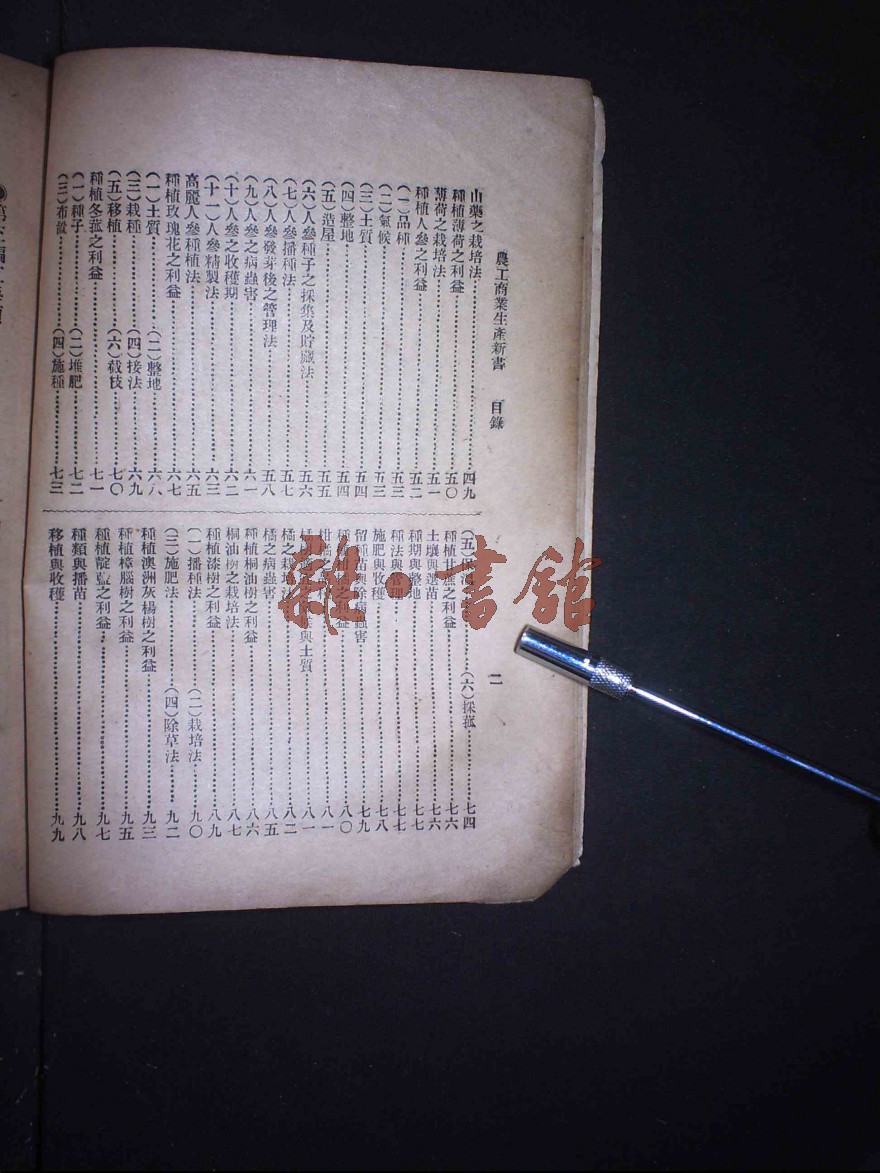 農工商業生產新書 目錄 二
山藥之栽培法 四九
種植薄荷之利益 五〇
薄荷之栽培法 五一
種植人參之利益 五二
(一)品種 五三
(二)氣候 五三
(三)土質 五四
(四)整地 五四
(五)造屋 五五
(六)人參種子之採集及貯藏法 五六
(七)人參播種法 五七
(八)人參發芽後之管理法 五八
(九)人參之病蟲害 六一
(十)人參之收穫期 六二
(十一)人參精製法 六三
高麗人參種植法 六五
種植玫瑰花之利益 六七
(一)土質 (二)整地 六八
(三)栽種 (四)接法 六九
(五)移植 (六)截枝 七〇
種植冬菰之利益 七一
(一)種子 (二)堆肥 七二
(三)布畝 (四)施種 七三
(五) (六)採菰 七四
種植甘蔗之利益 七六
土壤與選苗 七六
種期與整地 七七
種法與管理 七七
施肥與收穫 七八
留種苗與除病蟲害 七九
種植柑橘之利益 八〇
柑橘 八一
候與土質 八一
橘之栽培法 八二
橘之病蟲害 八五
種植桐油樹之利益 八六
桐油樹之栽培法 八七
種植漆樹之利益 八九
(一)播種法 (二)栽培法 九〇
(三)施肥法 (四)除草法 九二
種植澳洲灰楊樹之利益 九三
種植樟腦樹之利益 九五
種植靛藍之利益 九七
種類與播苗 九八
移植與收穫 九九
雜·書館